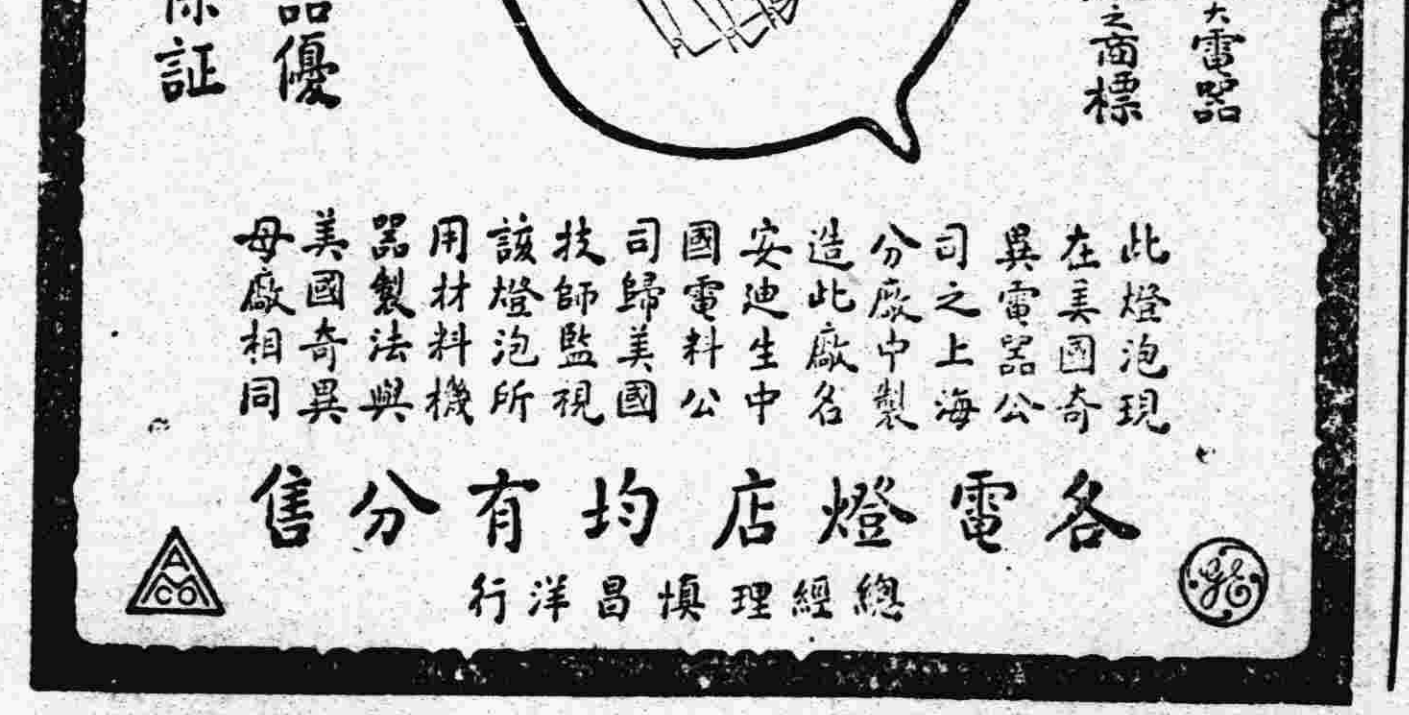 大電器
之商標
品優
保証
此燈泡現
在美國奇
異電器公
司之上海
分廠中製
造此廠名
安迪生中
國電料公
司歸美國
技師監視
該燈泡所
用材料機
器製法與
美國奇異
母廠相同
各電燈店均有分售
總經理慎昌洋行
GE
A
M
CO